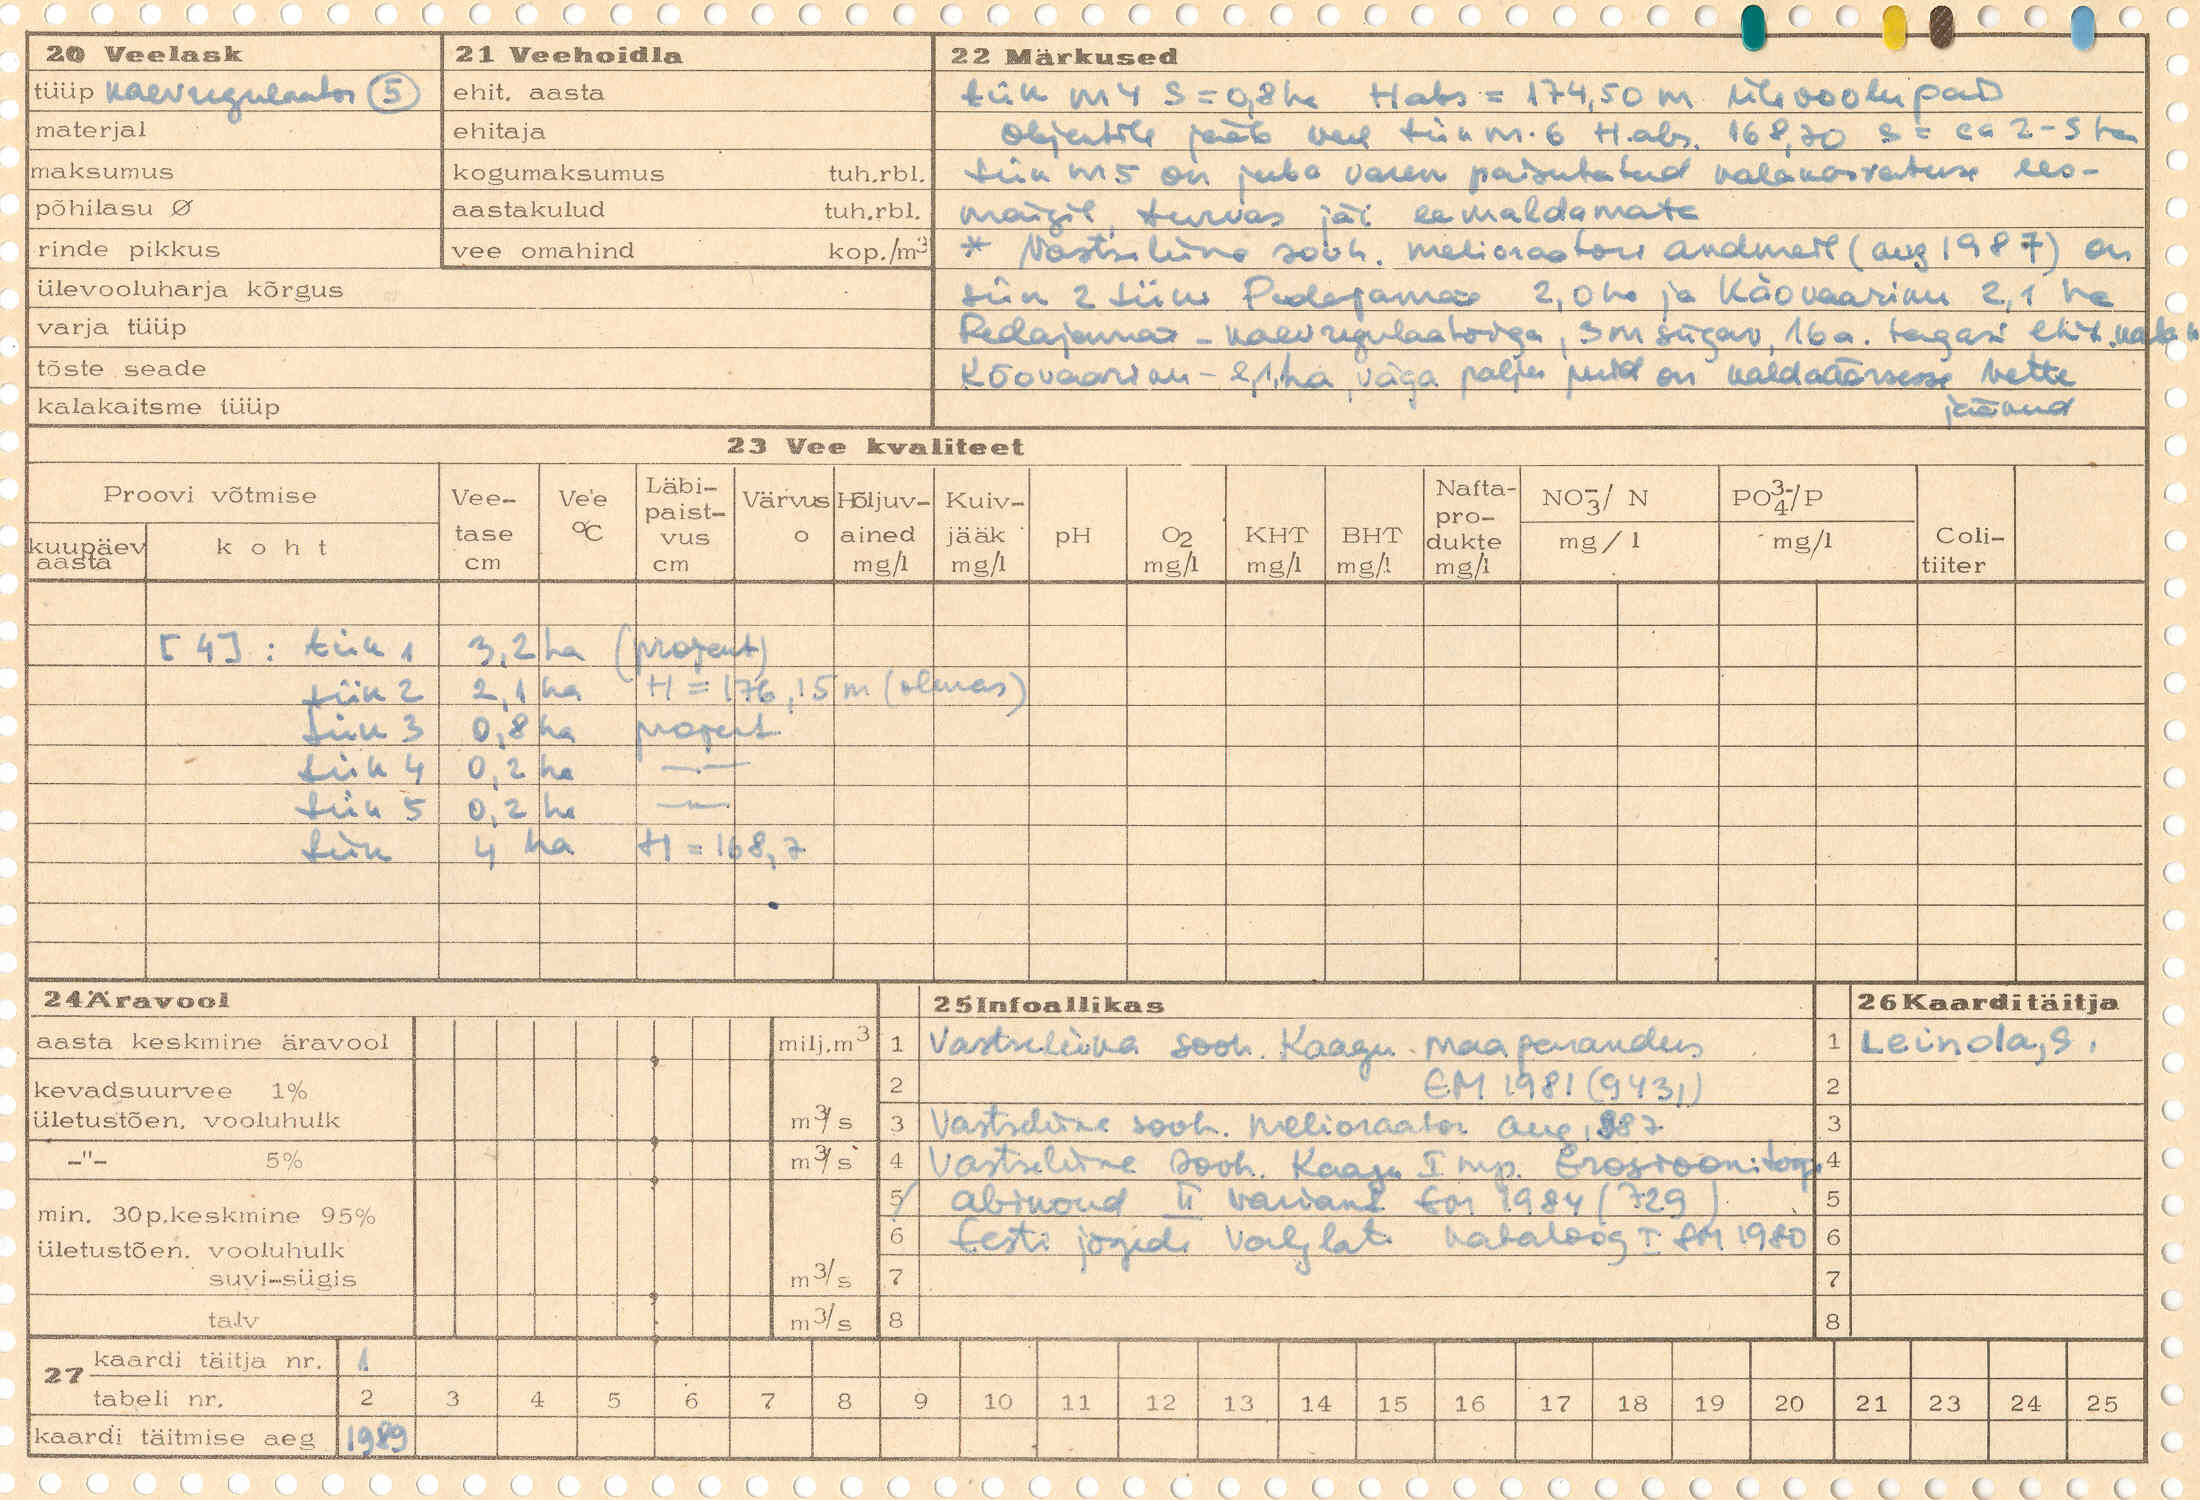 20 Veelask
tüüp kaevregulaator (5)
materjal
maksumus
põhilasu Ø
rinde pikkus
ülevooluharja kõrgus
varja tüüp
tõste seade
kalakaitsme tüüp
21 Veehoidla
ehit. aasta
ehitaja
kogumaksumus tuh.rbl.
aastakulud tuh.rbl.
vee omahind kop./m³
22 Märkused
tiik nr 4 S = 0,8 ha Habs = 174,50 m ülevoolupais
objektile jääb veel tiik nr. 6 H.abs. 168,70 S = ca 2-5 ha
tiik nr 5 on juba varem paisutatud kalakasvatuse ees-
märgil, turvas jäi eemaldamata
* Vastseliina sovh. melioraatori andmeil (aug 1987) on
siin 2 tiiki Pedajamäe 2,0 ha ja Kõovaariku 2,1 ha
Pedajamäe - kaevregulaatoriga, 3m sügav, 16 a. tagasi ehit.
Kõovaariku - 2,1 ha, väga palju puid on kaldaäärsesse vette
jäänud
23 Vee kvaliteet
Proovi võtmise
kuupäev aasta
koht
Vee-
tase
cm
Vee
°C
Läbi-
paist-
vus
cm
Värvus
o
Hõljuv-
ained
mg/l
Kuiv-
jääk
mg/l
pH
O2
mg/l
KHT
mg/l
BHT
mg/l
Nafta-
pro-
dukte
mg/l
NO₃⁻/ N
mg/l
PO₄³⁻/P
mg/l
Coli-
tiiter
[4] : tiik 1 3,2 ha (projekt)
tiik 2 2,1 ha H = 176,15 m (olemas)
tiik 3 0,8 ha projekt
tiik 4 0,2 ha —·—
tiik 5 0,2 ha —"—
tiik 4 ha H = 168,7
24 Äravool
aasta keskmine äravool milj.m³
kevadsuurvee 1%
ületustõen. vooluhulk m³/s
-"- 5% m³/s
min. 30p.keskmine 95%
ületustõen. vooluhulk
suvi-sügis m³/s
talv m³/s
25 Infoallikas
1 Vastseliina sovh. Kaagu maaparandus
2 EM 1981 (9431)
3 Vastseliina sovh. melioraator aug. 1987
4 Vastseliina sovh. Kaagu I mp. Erosioonitõrje
5 abinõud II variant EM 1984 (729)
6 Eesti jõgede valglate kataloog I EM 1980
7
8
26 Kaarditäitja
1 Leinola, S.
2
3
4
5
6
7
8
27 kaardi täitja nr. 1
tabeli nr. 2 3 4 5 6 7 8 9 10 11 12 13 14 15 16 17 18 19 20 21 23 24 25
kaardi täitmise aeg 1989